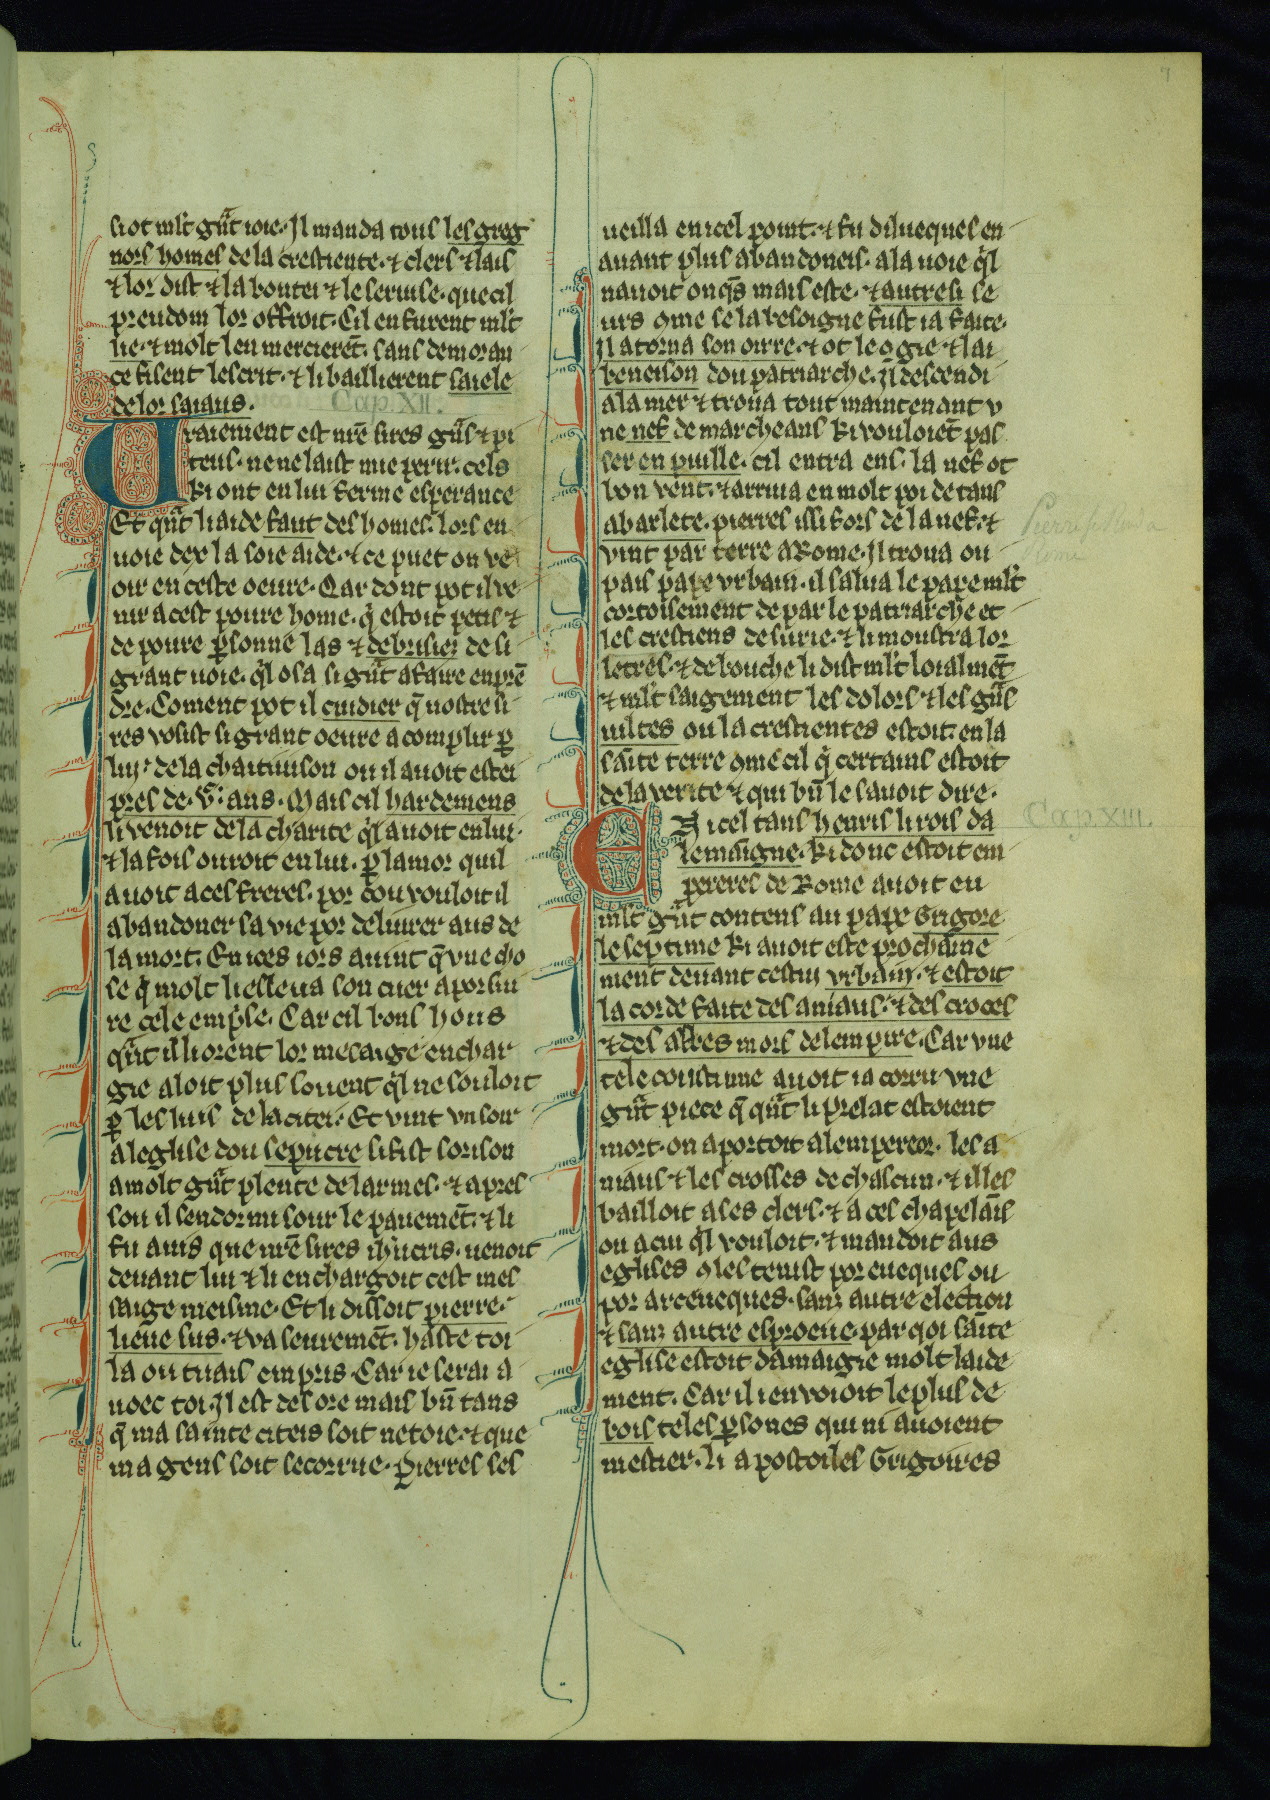 si ot ml't gn̄t ioie. Il manda tous les greg
nors homes de la crestiente. ⁊ clers ⁊ lais
⁊ lor dist ⁊ la bontei ⁊ le seruise. que cil
preudom lor offroit. Cil en furent ml't
lie. ⁊ molt len mercieret̄. sans demoran
ce fisent lescrit. ⁊ li baillierent saiele
de lor saiaus.
Cap. XII.
Uraiement est nr̄e sires gn̄s ⁊ pi
teus. ne ne laist mie perir. cels
ki ont en lui ferme esperance
Et qn̄t li aide faut des homes. lors en
uoie dex la soie aide. ⁊ ce puet on ve
oir en ceste oeure. Car dont pot il ve
nir a cest poure home. q̇ estoit petis ⁊
de poure ꝑsonne las ⁊ debrisiez de si
grant uoie. ql' osa si gn̄t afaire enpre̅
dre. Coment pot il cuidier q̄ nostre si
res vosist si grant oeure acomplir ꝑ
lui. de la chaitiuison ou il auoit estei
pres de .Vc. ans. Mais cil hardemens
li venoit de la charite ql' auoit en lui.
⁊ la fois ouroit en lui. ꝑ lamor quil
auoit a ces freres. por cou vouloit il
abandoner sa vie por deliurer aus de
la mort. En ices iors auint q̄ vne cho
se q̇ molt li esleua son cuer a porsiu
re cele emp̄se. Car cil bons hons
qn̄t il li orent lor mesaige enchar
gie aloit plus souent ql' ne souloit
ꝑ les luis de la citei. Et vint vn soir
a leglise dou sepucre si fist sorison
a molt gn̄t plente de larmes. ⁊ apres
sou il sendormi sour le pauemet̄. ⁊ li
fu auis que nr̄e sires ih'ucris. uenoit
deuant lui ⁊ li enchargoit cest mes
saige meisme. Et li dissoit pierre.
lieue sus. ⁊ va seuremet̄. haste toi
la ou tu ais empris. Car ie serai a
uoec toi. Il est des ore mais bn̄ tans
q̄ ma sainte citeis soit netoie. ⁊ que
ma gens soit secorrue. Pierres ses
ueilla en icel point. ⁊ fu diluequeˢ en
auant plus abandoneis. a la uoie ql'
nauoit onqs̄ mais este. ⁊ autresi se
urs 9me se la besoigne fust ia faite.
Il atorna son oirre. ⁊ ot le 9gie ⁊ lai
beneison dou patriarche. Il descendi
a la mer ⁊ troua tout maintenant v
ne nef de marcheans ki vouloiet̄ pas
ser en puille. cil entra ens. la nef ot
bon vent. ⁊ arriua en molt poi de tans
a barlete. pierres issi fors de la nef. ⁊
vint par terre a Rome. Il troua ou
pais pape vrbain. il salua le pape ml't
cortoisement de par le patriarche et
les crestiens de surie. ⁊ li moustra lor
letres. ⁊ de bouche li dist ml't loialmet̄
⁊ ml't saigement les dolors ⁊ les gn̄s
uiltes ou la crestientes estoit. en la
sāite terre 9me cil q̇ certains estoit
de la verite ⁊ qui bn̄ le sauoit dire.
Cap. XIII.
En icel tans henris li rois da
lemaigne. ki donc estoit em
pereres de Rome auoit eu
ml't gn̄t contens au pape Grigore
le septime ki auoit este prochaine
ment deuant cestui vrbain. ⁊ estoit
la corde faite des aniaus. ⁊ des croces
⁊ des altres mors de lempire. Car vne
tele coustume auoit ia corru vne
gn̄t piece q̄ qn̄t li prelat estoient
mort. on aportoit a lempereor. les a
niaus ⁊ les crosses de chascun. ⁊ il les
bailloit a ses clers. ⁊ a ces chapelaīs
ou a cui ql' vouloit. ⁊ mandoit aus
eglises 9 les tenist por euequeˢ ou
por arceueques. sanz autre election
⁊ sanz autre esproeue. par qoi saīte
eglise estoit damaigie molt laide
ment. Car il i envoioit le plus de
fois teles ꝑsones qui ni auoient
mestier. li apostoiles Grigoires